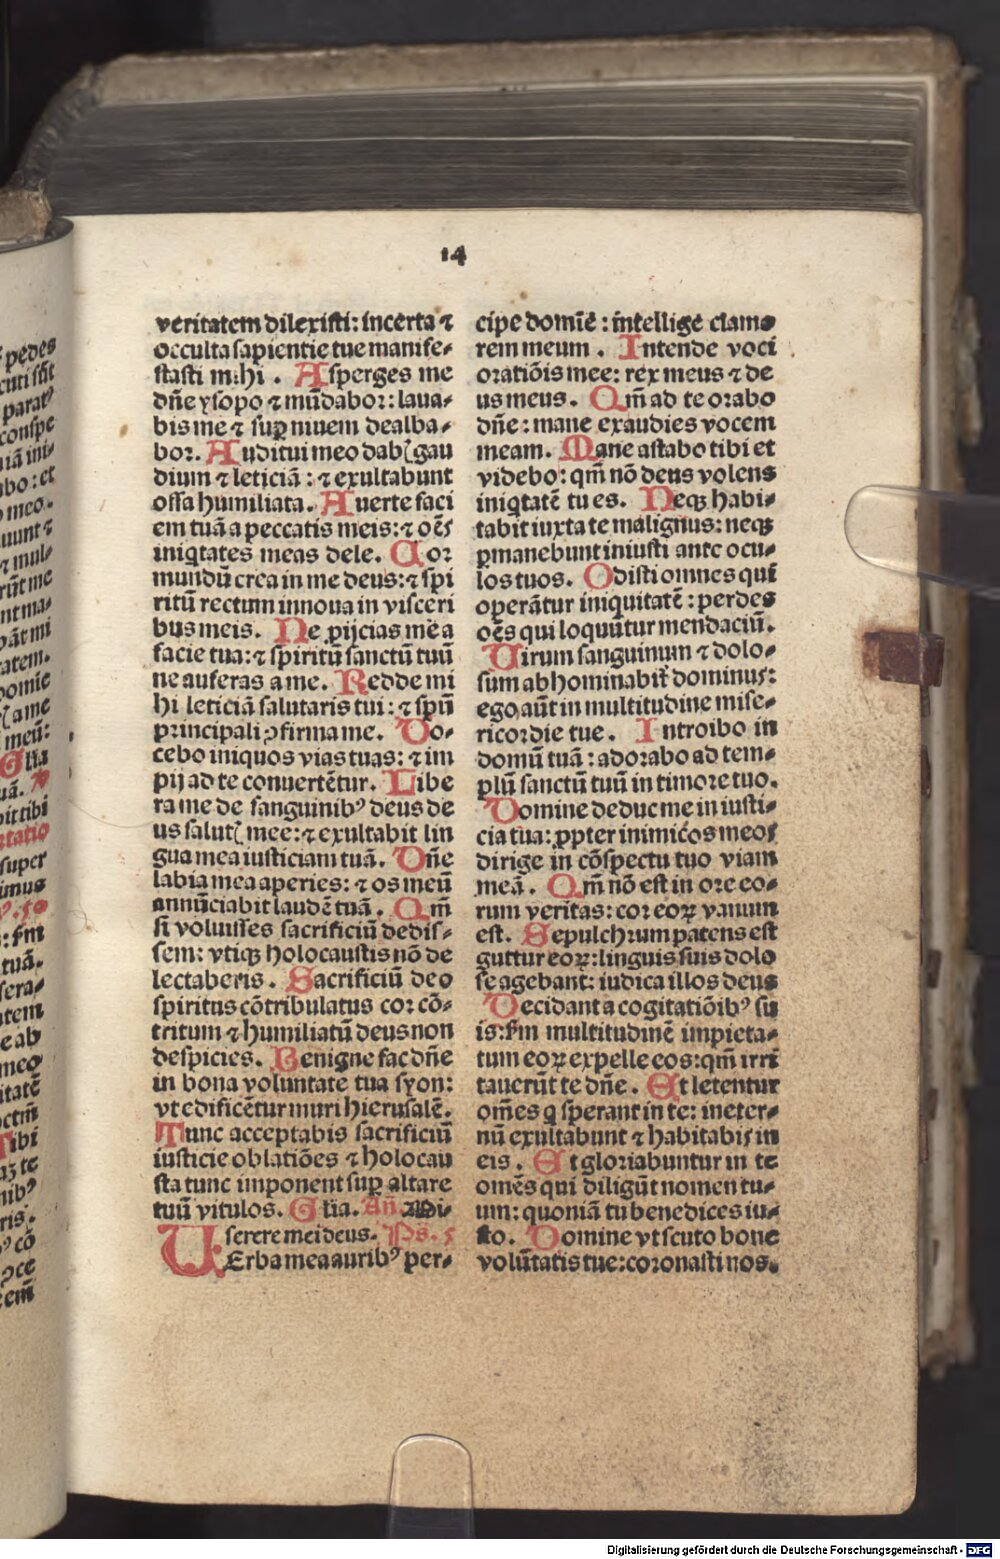 14
veritatem dilexisti: incerta ⁊
occulta sapientie tue manife-
stasti mihi. Asperges me
dñe ysopo ⁊ mũdabor: laua-
bis me ⁊ sup niuem dealba-
bor. Auditui meo dabꝭ gau
dium ⁊ leticiã: ⁊ exultabunt
ossa humiliata. Auerte faci
em tuã a peccatis meis: ⁊ oẽs
iniqtates meas dele. Cor
mundũ crea in me deus: ⁊ spi
ritũ rectum innoua in visceri
bus meis. Ne ꝓijcias me a
facie tua: ⁊ spiritũ sanctũ tuũ
ne auferas a me. Redde mi
hi leticiã salutaris tui: ⁊ spũ
principali ꝯfirma me. Do-
cebo iniquos vias tuas: ⁊ im
pij ad te conuertẽtur. Libe
ra me de sanguinibꝰ deus de
us salutꝭ mee: ⁊ exultabit lin
gua mea iusticiam tuã. Dñe
labia mea aperies: ⁊ os meũ
annũciabit laudẽ tuã. Qm̃
si voluisses sacrificiũ dedis-
sem: vtiqꝫ holocaustis nõ de
lectaberis. Sacrificiũ deo
spiritus cõtribulatus cor cõ-
tritum ⁊ humiliatũ deus non
despicies. Benigne fac dñe
in bona voluntate tua syon:
vt edificẽtur muri hierusalẽ.
Tunc acceptabis sacrificiũ
iusticie oblatiões ⁊ holocau
sta tunc imponent sup altare
tuũ vitulos. Glia. Añ. Mi-
serere mei deus. Ps. 5
VErba mea auribꝰ per-
cipe domĩe: intellige clamo
rem meum. Intende voci
oratiõis mee: rex meus ⁊ de
us meus. Qm̃ ad te orabo
dñe: mane exaudies vocem
meam. Mane astabo tibi et
videbo: qm̃ nõ deus volens
iniqtatẽ tu es. Neqꝫ habi-
tabit iuxta te malignus: neqꝫ
ꝑmanebunt iniusti ante ocu-
los tuos. Odisti omnes qui
operãtur iniquitatẽ: perdes
oẽs qui loquũtur mendaciũ.
Virum sanguinum ⁊ dolo-
sum abhominabit̃ dominus:
ego aũt in multitudine mise-
ricordie tue. Introibo in
domũ tuã: adorabo ad tem-
plũ sanctũ tuũ in timore tuo.
Domine deduc me in iusti-
cia tua: ꝓpter inimicos meos
dirige in cõspectu tuo viam
meã. Qm̃ nõ est in ore eo-
rum veritas: cor eoꝝ vanum
est. Sepulchrum patens est
guttur eoꝝ: linguis suis dolo
se agebant: iudica illos deus
Decidant a cogitatiõibꝰ su
is: s̃m multitudinẽ impieta-
tum eoꝝ expelle eos: qm̃ irri
tauerũt te dñe. Et letentur
om̃es q sperant in te: in eter-
nũ exultabunt ⁊ habitabis in
eis. Et gloriabuntur in te
om̃es qui diligũt nomen tu-
um: quoniã tu benedices iu-
sto. Domine vt scuto bone
volũtatis tue: coronasti nos.
Digitalisierung gefördert durch die Deutsche Forschungsgemeinschaft - DFG